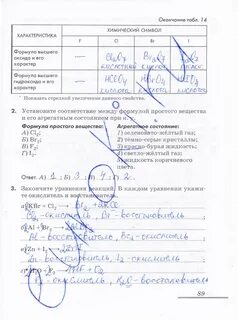 Окончание табл. 14
ХАРАКТЕРИСТИКА
ХИМИЧЕСКИЙ СИМВОЛ
F Cl Br I
Формула высшего оксида и его характер
— Cl₂O₇ кислотный
Формула высшего гидроксида и его характер
— HClO₄ кислота
* Покажите стрелкой увеличение данного свойства.
2. Установите соответствие между формулой простого вещества и его агрегатным состоянием при н. у.
Формула простого вещества: Агрегатное состояние:
А) Cl₂; 1) зеленовато-жёлтый газ;
Б) Br₂; 2) тёмно-серые кристаллы;
В) F₂; 3) красно-бурая жидкость;
Г) I₂. 4) светло-жёлтый газ;
5) жидкость коричневого цвета.
Ответ. А 1; Б 3; В 4; Г 2.
3. Закончите уравнения реакций. В каждом уравнении укажите окислитель и восстановитель.
а) KBr + Cl₂
Cl₂ - окислитель, Br - восстановитель
б) Al + Br₂
Al - восстановитель, Br₂ - окислитель
в) Zn + I₂
Zn - восстановитель, I₂ - окислитель
F₂ - окислитель, H₂O - восстановитель
89